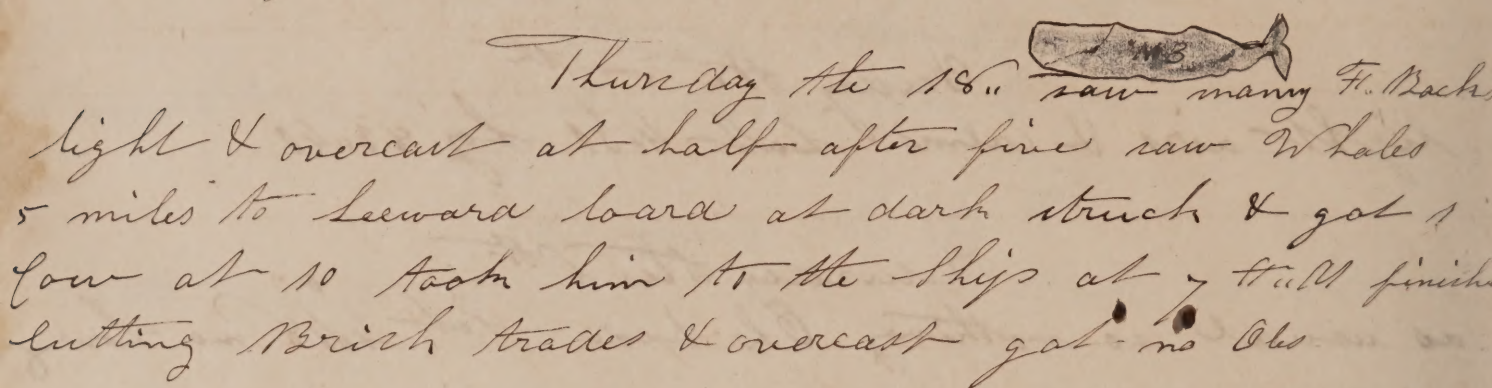 MB
Thursday the 18,, saw many F. Backs
light & overcast at half after five saw Whales
5 miles to Leeward loard at dark struck & got 1
Cow at 10 took him to the Ship at 7 A,,M finishe
cutting Brisk trades & overcast got no Obs